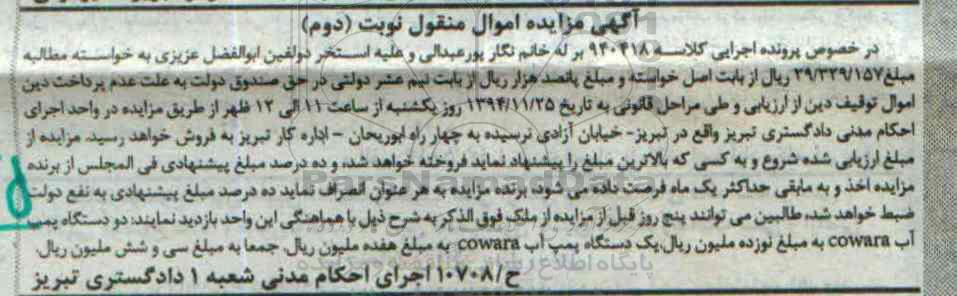 آگهی مزایده اموال منقول نوبت (دوم)
در خصوص پرونده اجرایی کلاسه ۹۴۰۴۱۸ بر له خانم نگار پورعبدالی و علیه استخر دولفین ابوالفضل عزیزی به خواسته مطالبه
مبلغ۲۹/۳۲۹/۱۵۷ ریال از بابت اصل خواسته و مبلغ پانصد هزار ریال از بابت نیم عشر دولتی در حق صندوق دولت به علت عدم پرداخت دین
اموال توقیف دین از ارزیابی و طی مراحل قانونی به تاریخ ۱۳۹۴/۱۱/۲۵ روز یکشنبه از ساعت ۱۱ الی ۱۲ ظهر از طریق مزایده در واحد اجرای
احکام مدنی دادگستری تبریز واقع در تبریز- خیابان آزادی نرسیده به چهار راه ابوریحان - اداره کار تبریز به فروش خواهد رسید. مزایده از
مبلغ ارزیابی شده شروع و به کسی که بالاترین مبلغ را پیشنهاد نماید فروخته خواهد شد، و ده درصد مبلغ پیشنهادی فی المجلس از برنده
مزایده اخذ و به مابقی حداکثر یک ماه فرصت داده می شود، برنده مزایده به هر عنوان انصراف نماید ده درصد مبلغ پیشنهادی به نفع دولت
ضبط خواهد شد، طالبین می توانند پنج روز قبل از مزایده از ملک فوق الذکر به شرح ذیل با هماهنگی این واحد بازدید نمایند: دو دستگاه پمپ
آب cowara به مبلغ نوزده ملیون ریال،یک دستگاه پمپ آب cowara به مبلغ هفده ملیون ریال، جمعا به مبلغ سی و شش ملیون ریال.
ح/۱۰۷۰۸ اجرای احکام مدنی شعبه ۱ دادگستری تبریز